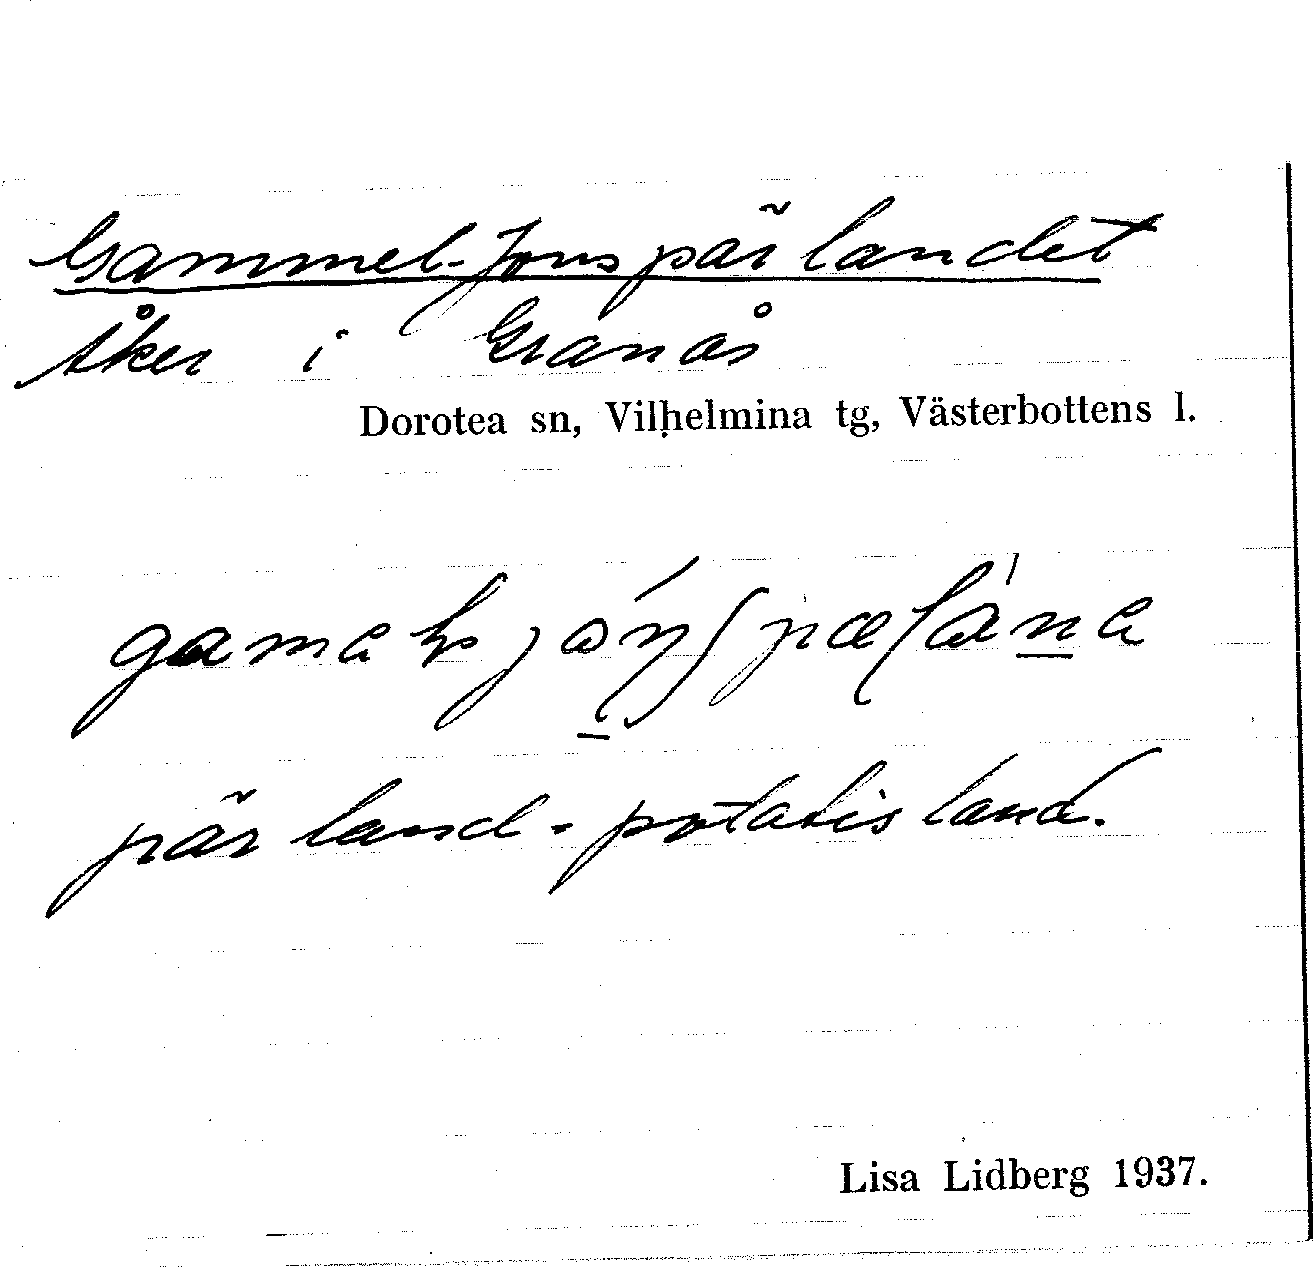 Gammel-Jonspärlandet
Åker i Granås
Dorotea sn, Vilhelmina tg, Västerbottens l.
pärland - potatisland.
Lisa Lidberg 1937.